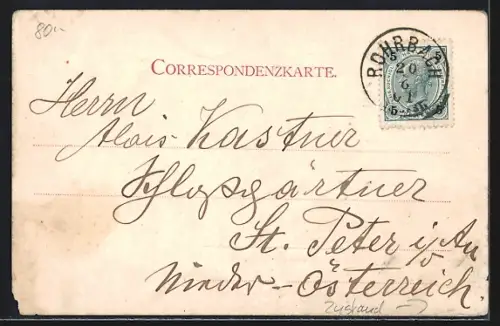 80.-
CORRESPONDENZKARTE.
ROHRBACH
20
6
01
5 5
Herrn
Alois Kastner
Schloßgärtner
St. Peter i/Au
Nieder-Österreich.
Zustand →